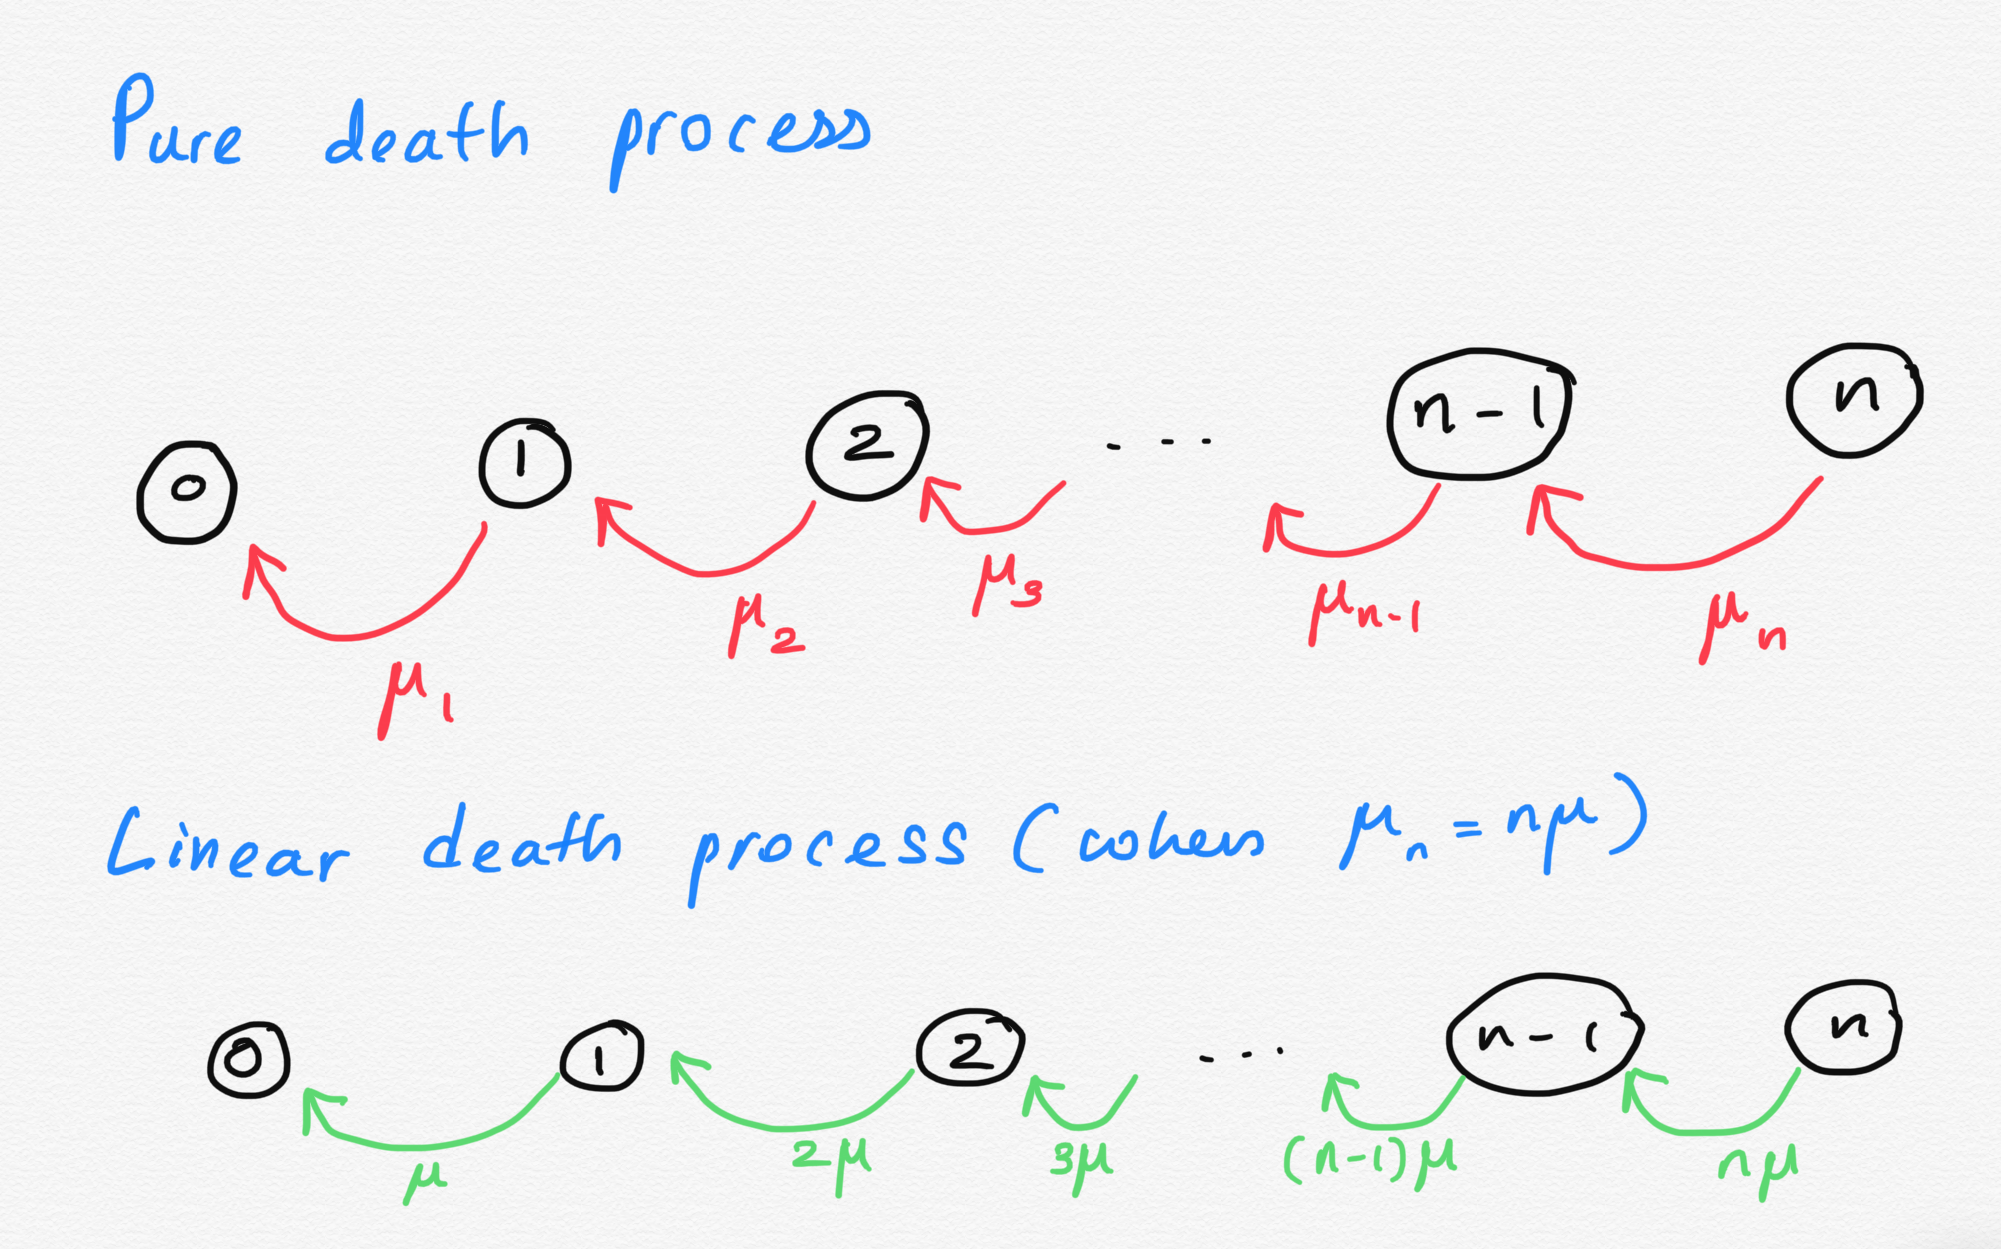 Pure death process
0 1 2 .... n-1 n
μ₁ μ₂ μ₃ μₙ₋₁ μₙ
Linear death process (when μₙ = nμ)
0 1 2 ... n-1 n
μ 2μ 3μ (n-1)μ nμ